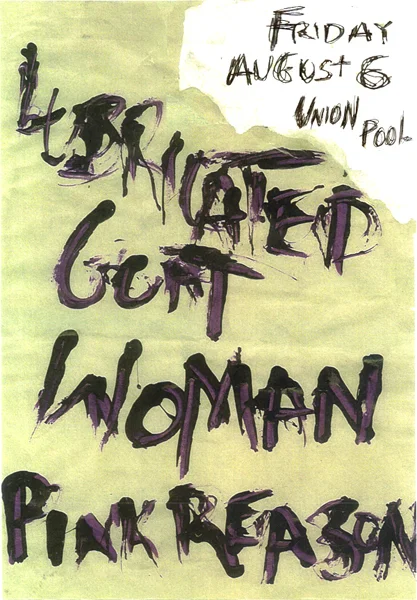 FRIDAY
AUGUST 6
UNION
POOL
LUBRICATED
GOAT
WOMAN
PINK REASON